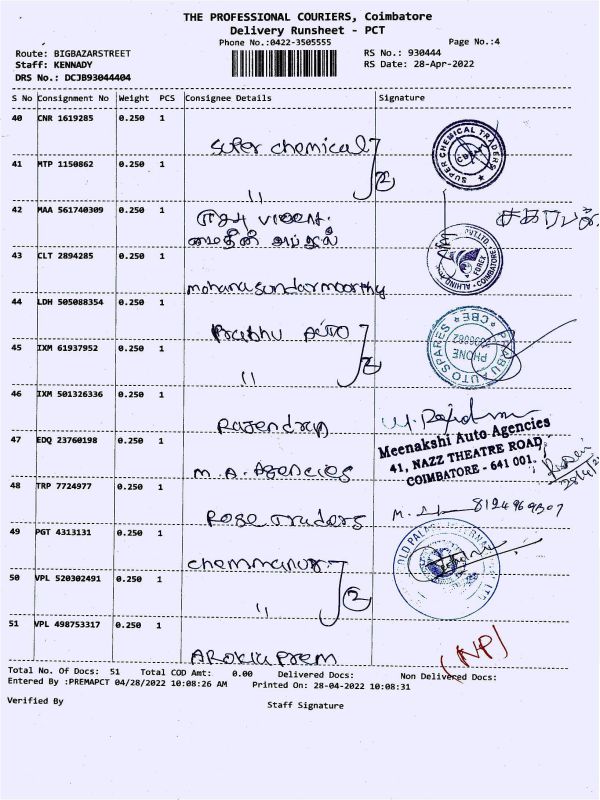 THE PROFESSIONAL COURIERS, Coimbatore
Delivery Runsheet - PCT
Phone No.:0422-3505555
Page No.:4
Route: BIGBAZARSTREET
RS No.: 930444
Staff: KENNADY
RS Date: 28-Apr-2022
DRS No.: DCJB93044404
S No Consignment No Weight PCS Consignee Details Signature
40 CNR 1619285 0.250 1
super chemical
SUPER CHEMICAL TRADERS
41 MTP 1150862 0.250 1
"
2
42 MAA 561740309 0.250 1
43 CLT 2894285 0.250 1
mohanasundarmoorthy
PVT.LTD. FOREX COIMBATORE
44 LDH 505088354 0.250 1
Prabhu Auto
PRABU AUTO SPARES CBE
PHONE
45 IXM 61937952 0.250 1
"
2
46 IXM 501326336 0.250 1
Rajendran
47 EDQ 23760198 0.250 1
M.A. Agencies
Meenakshi Auto Agencies
41, NAZZ THEATRE ROAD,
COIMBATORE - 641 001.
48 TRP 7724977 0.250 1
Rose Traders
49 PGT 4313131 0.250 1
chemmanur
50 VPL 520302491 0.250 1
"
2
51 VPL 498753317 0.250 1
AROKIA Prem
(NP)
Total No. Of Docs: 51 Total COD Amt: 0.00 Delivered Docs: Non Delivered Docs:
Entered By :PREMAPCT 04/28/2022 10:08:26 AM Printed On: 28-04-2022 10:08:31
Verified By
Staff Signature